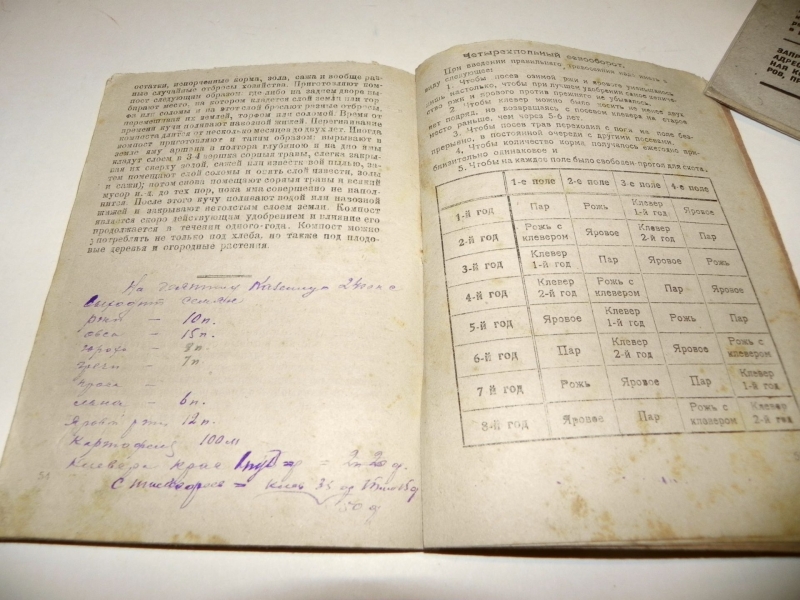 остатки, испорченные корма, зола, сажа и вообще раз-
ные случайные отбросы хозяйства. Приготовляют ком-
пост следующим образом: где либо на заднем дворе вы-
бирают место, на котором кладется слой земли или тор-
фа или соломы и на этот слой бросают разные отбросы,
переменивая их землей, торфом или соломой. Время от
времени кучи поливают навозной жижей. Перегнивание
компоста длится от месяцев до двух лет. Иногда
компост приготовляют и таким образом: вырывают в
земле яму аршина в полтора глубиною и на дно ямы
кладут слоем в 3-4 вершка сорные травы, слегка закры-
вая их сверху золой, сажей или известковой пылью, за-
тем помещают слой соломы и опять слой извести, золы
и сажи; потом снова помещают сорные травы и всякий
мусор и т. д. до тех пор, пока яма совершенно не напол-
нится. После этого кучу поливают водой или навозной
жижей и закрывают нетолстым слоем земли. Компост
является скоро действующим удобрением и влияние его
продолжается в течении одного-года. Компост можно
употреблять не только под хлеба, но также под плодо-
вые деревья и огородные растения.
На
выходит семян
ржи — 10п.
овса — 15п.
гороха — 8п.
гречи — 7п.
льна — 6п.
Ярової ржи 12п.
Картофеля 100м
Клевера = 2п 20ф.
50ф
51
Четырехпольный севооборот.
При введении правильного
виду следующее:
1. Чтобы посев озимой ржи и ярового уменьшился
лишь настолько, чтобы при лучшем удобрении количе-
ство ржи и ярового против прежнего не убывалось.
2. Чтобы клевер можно было косить не менее двух
лет подряд, не возвращаясь с посевом клевера на старое
место раньше, чем через 5-6 лет.
3. Чтобы после трав переходил с поля на поле без-
прерывно, в постоянной очереди с другими посевами.
4. Чтобы количество корма получалось ежегодно при-
близительно одинаковое и
5. Чтобы на каждое поле был свободен прогон для скота.
1-е поле 2-е поле 3-е поле 4-е поле
1-й год Пар Рожь Клевер 1-й год Яровое
2-й год Рожь с клевером Яровое Клевер 2-й год Пар
3-й год Клевер 1-й год Пар Яровое Рожь
4-й год Клевер 2-й год Рожь с клевером Пар Яровое
5-й год Яровое Клевер 1-й год Рожь Пар
6-й год Пар Клевер 2-й год Яровое Рожь с клевером
7-й год Рожь Яровое Пар Клевер 1-й год
8-й год Яровое Пар Рожь с клевером Клевер 2-й год
ЗАПР
АДРЕС
НАЯ К
РОВ, П